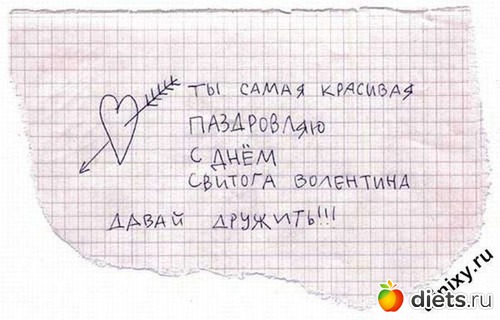 ты самая красивая
паздровляю
с днём
свитога волентина
давай дружить!!!
diets.ru